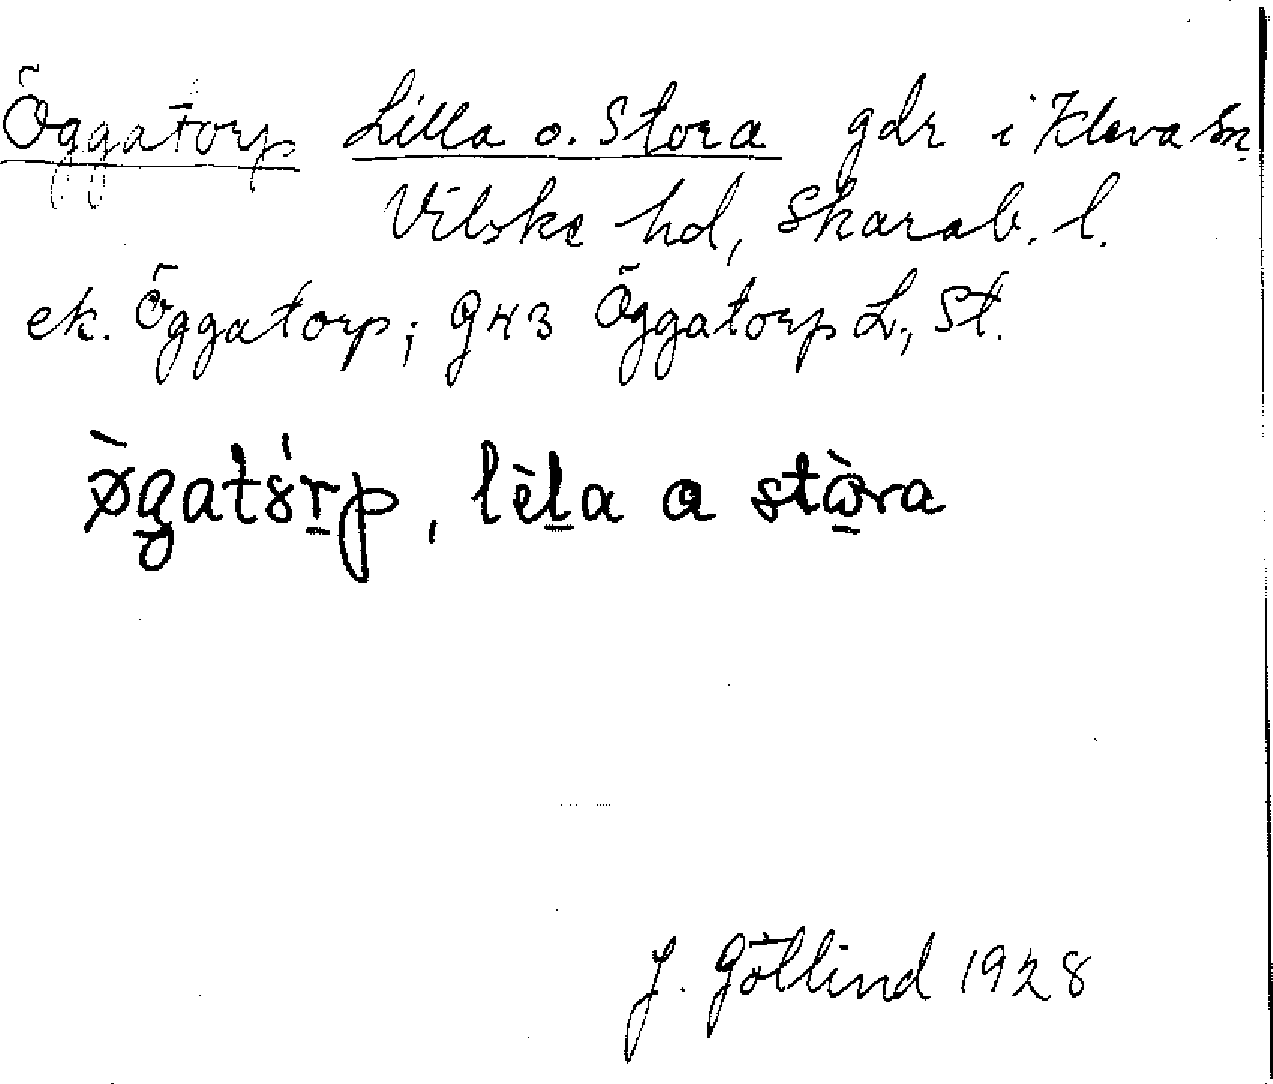 Öggatorp Lilla o. Stora gdr i Kleva sn
Vilske hd, Skarab. l.
ek. Öggatorp; G43 Öggatorp L, St.
ø̀gatȣ́rp, lèla a stòra
J. Götlind 1928